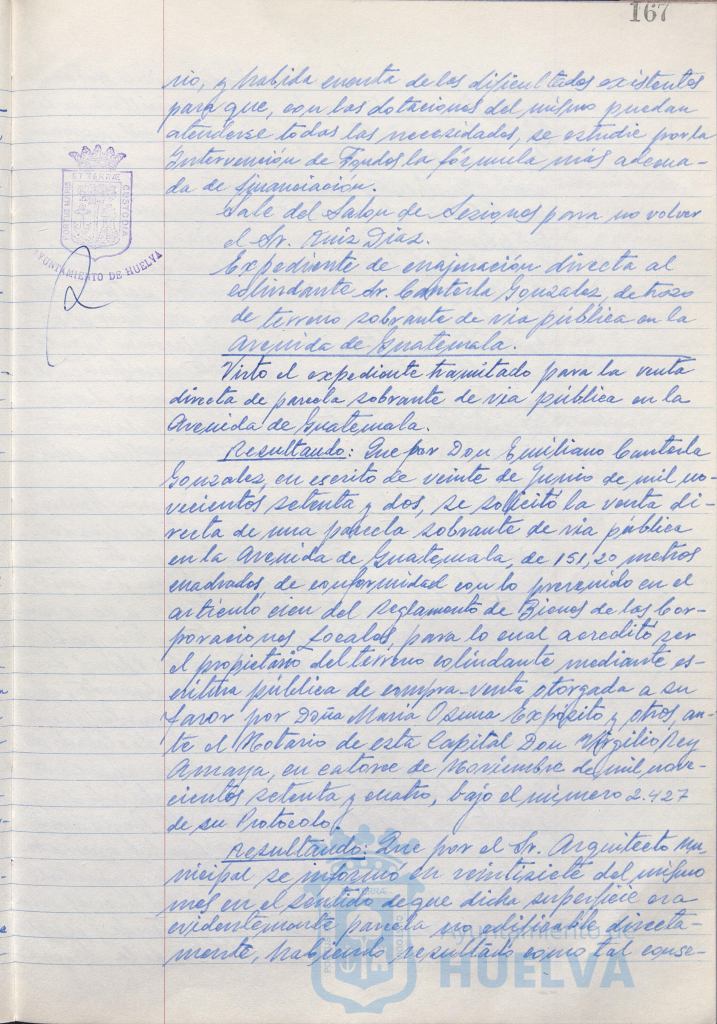 167
rio, y habida cuenta de las dificultades existentes
para que, con las dotaciones del mismo puedan
atenderse todas las necesidades, se estudie por la
Intervención de Fondos la fórmula más adecua-
da de financiación.
Sale del Salon de Sesiones para no volver
el Sr. Ruiz Diaz.
Expediente de enajenación directa al
colindante Sr. Cantorla Gonzalez, de trozo
de terreno sobrante de via pública en la
Avenida de Guatemala.
Visto el expediente tramitado para la venta
directa de parcela sobrante de via pública en la
Avenida de Guatemala.
Resultando: Que por Don Emiliano Cantorla
Gonzalez, en escrito de veinte de Junio de mil no-
vecientos setenta y dos, se solicitó la venta di-
recta de una parcela sobrante de via pública
en la Avenida de Guatemala, de 151,20 metros
cuadrados, de conformidad con lo prevenido en el
articulo cien del Reglamento de Bienes de las Cor-
poraciones Locales, para lo cual acreditó ser
el propietario del terreno colindante mediante es-
critura pública de compra-venta otorgada a su
favor por Doña Maria Osuna Expósito y otros, an-
te el Notario de esta Capital Don Virgilio Rey
Amaya, en catorce de Noviembre de mil nove-
cientos setenta y cuatro, bajo el número 2.427
de su Protocolo.
Resultando: Que por el Sr. Arquitecto Mu-
nicipal se informó en veintisiete del mismo
mes en el sentido de que dicha superficie era
evidentemente parcela no edificable directa-
mente, habiendo resultado como tal conse-
AYUNTAMIENTO DE HUELVA
PORTUS MARIS
ET TERRÆ
CUSTODIA
Ayuntamiento
HUELVA